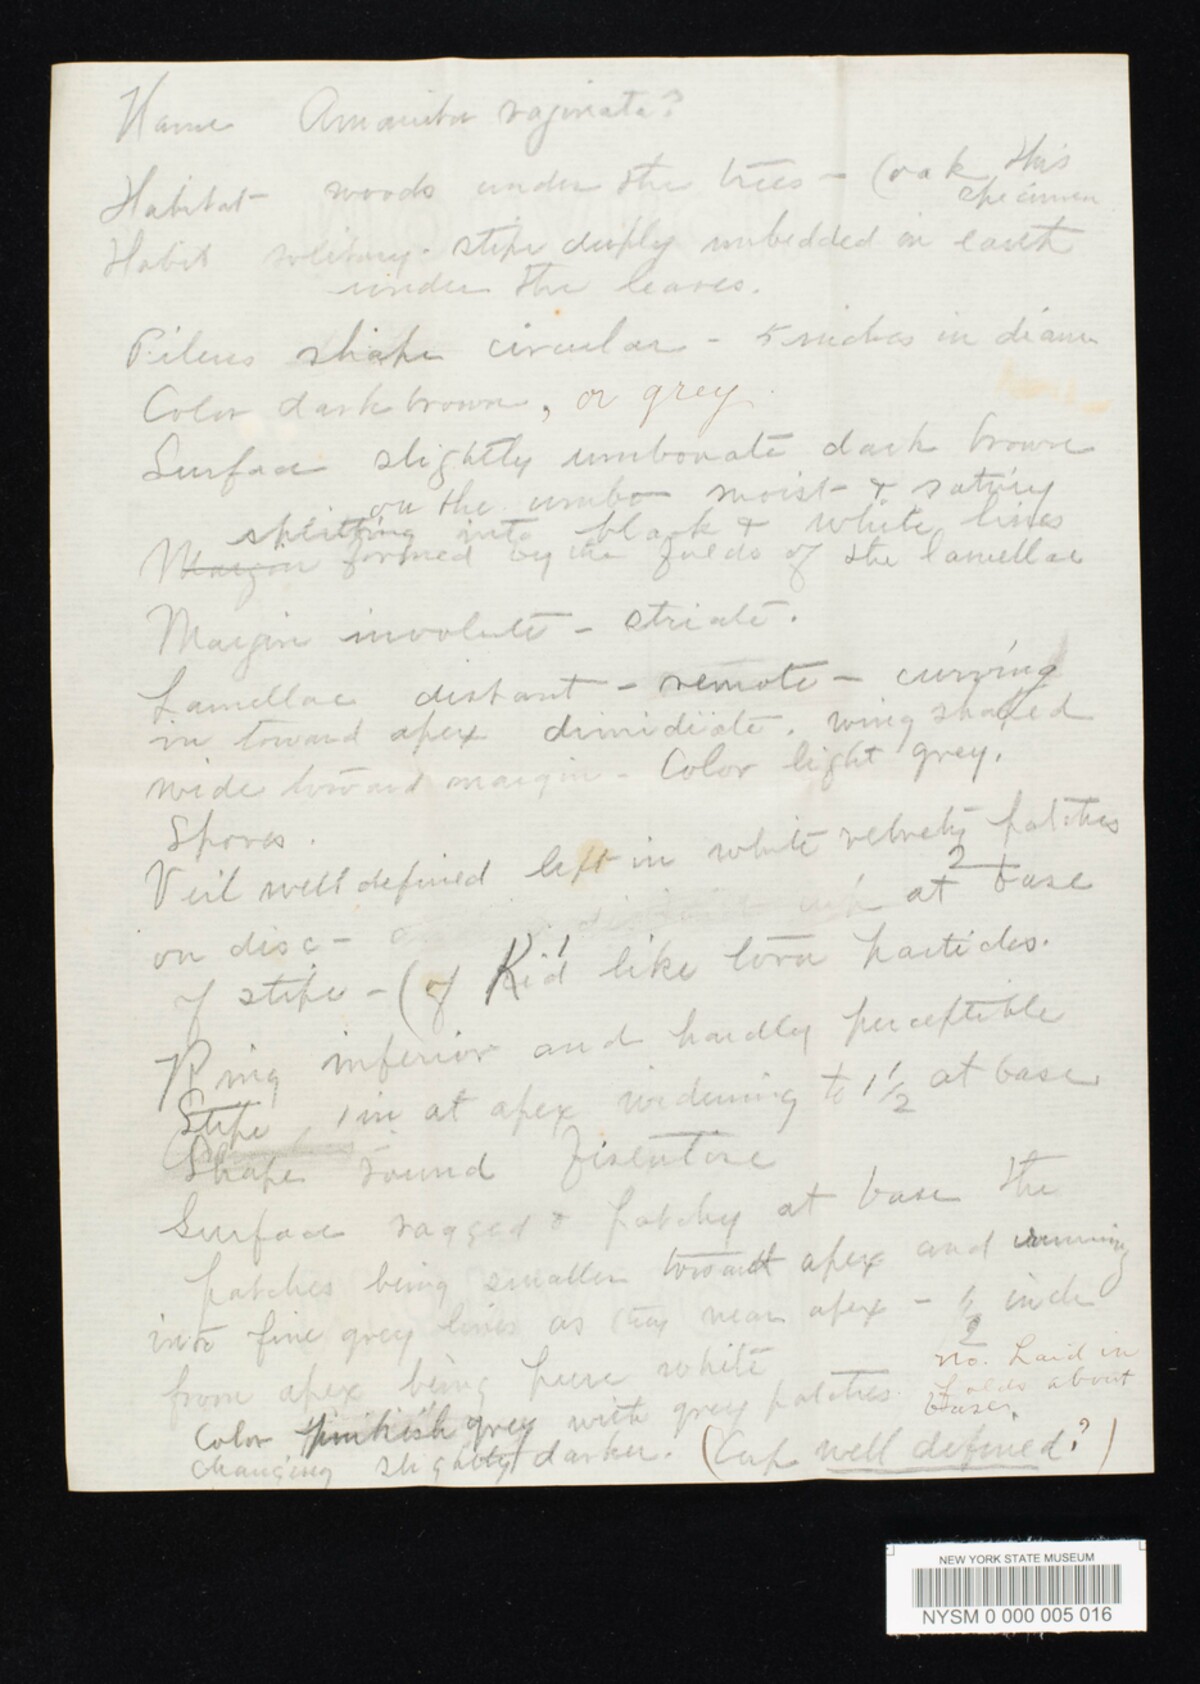 Name Amanita vaginata?
Habitat - woods under the trees - (oak this
specimen
Habit solitary - stipe deeply imbedded in earth
under the leaves.
Pileus shape circular - 5 inches in diam
Color dark brown, or grey.
Surface slightly umbonate dark brown
on the umbo moist & satiny
splitting into black & white lines
Margin formed by the folds of the lamellae
Margin involute - striate.
Lamellae distant - remote - curving
in toward apex dimidiate. wing shaped
wide toward margin - Color light grey.
Spores.
Veil well defined left in white velvety patches
2
on disc - at base
of stipe - (of Kid like torn particles.
Ring inferior and hardly perceptible
Stipe, 1 in at apex widening to 1 1/2 at base
Shape round
Surface ragged & patchy at base the
patches being smaller toward apex and running
into fine grey lines as they near apex - 1/2 inch
from apex being pure white
no. Laid in
folds about
base.
Color pinkish grey with grey patches.
changing slightly darker. (Cup well defined?)
NEW YORK STATE MUSEUM
NYSM 0 000 005 016